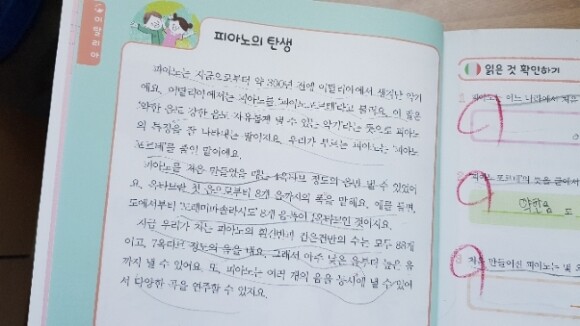 피아노의 탄생
피아노는 지금으로부터 약 300년 전에 이탈리아에서 생겨난 악기
예요. 이탈리아에서는 피아노를 '피아노포르테'라고 불러요. 이 말은
'약한 음도 강한 음도 자유롭게 낼 수 있는 악기'라는 뜻으로 피아노
의 특징을 잘 나타내는 말이지요. 우리가 부르는 피아노는 '피아노
포르테'를 줄인 말이에요.
피아노를 처음 만들었을 때는 옥타브 정도의 음만 낼 수 있었어
요. 옥타브란 첫 음으로부터 8개 음까지의 폭을 말해요. 예를 들면,
도에서부터 '도레미파솔라시도' 8개 음 폭이 1옥타브인 것이지요.
지금 우리가 치는 피아노의 흰건반과 검은건반의 수는 모두 88개
이고, 7옥타브 정도의 음을 내요. 그래서 아주 낮은 음부터 높은 음
까지 낼 수 있어요. 또, 피아노는 여러 개의 음을 동시에 낼 수 있어
서 다양한 곡을 연주할 수 있지요.
읽은 것 확인하기
피아노는 어느 나라에서 처음
피아노포르테의 뜻을 글에서
약한음
처음 만들어진 피아노는 몇 옥